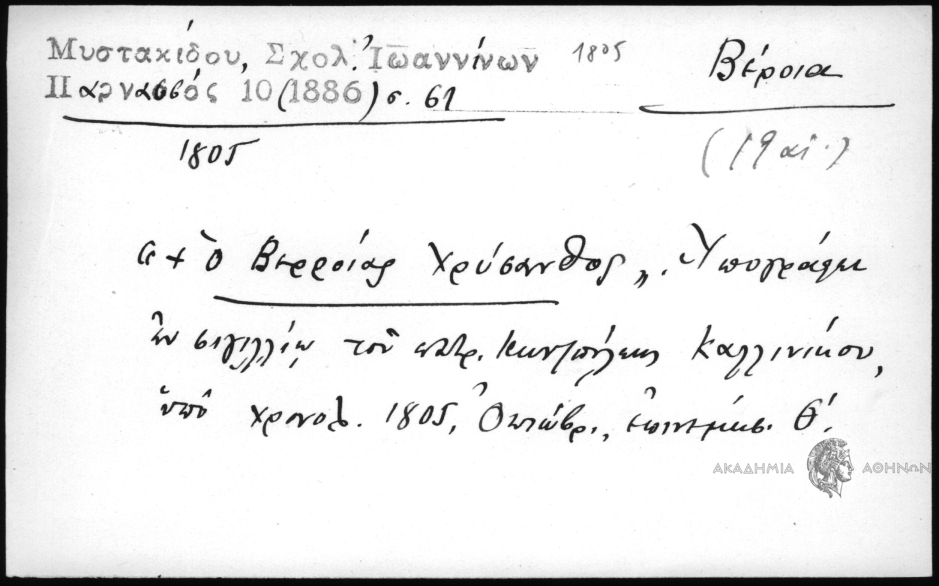 Μυστακίδου, Σχολ. Ἰωαννίνων 1805 Βέροια
Παρνασσός 10 (1886) σ. 61
1805 (19 αἰ.)
« + ὁ Βερροίας Χρύσανθος „. Ὑπογράφει
ἐν σιγιλλίῳ τοῦ πατρ. Κωνζπόλεως Καλλινίκου,
ὑπὸ χρονολ. 1805, Ὀκτώβρ., ἐπινεμήσ. Θ΄.
ΑΚΑΔΗΜΙΑ ΑΘΗΝΩΝ